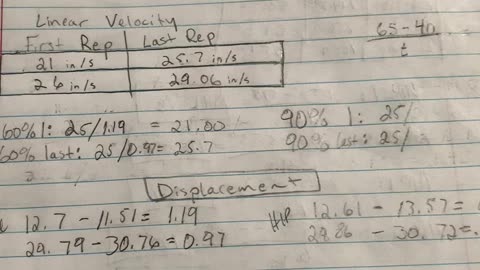 Linear Velocity
First Rep Last Rep
21 in/s 25.7 in/s
26 in/s 29.06 in/s
65-40
t
60% 1: 25/1.19 = 21.00
60% last: 25/0.97= 25.7
90% 1: 25/
90% last: 25/
Displacement
12.7 - 11.51 = 1.19
29.79 - 30.76 = 0.97
12.61 - 13.57 =
- 30.72 =